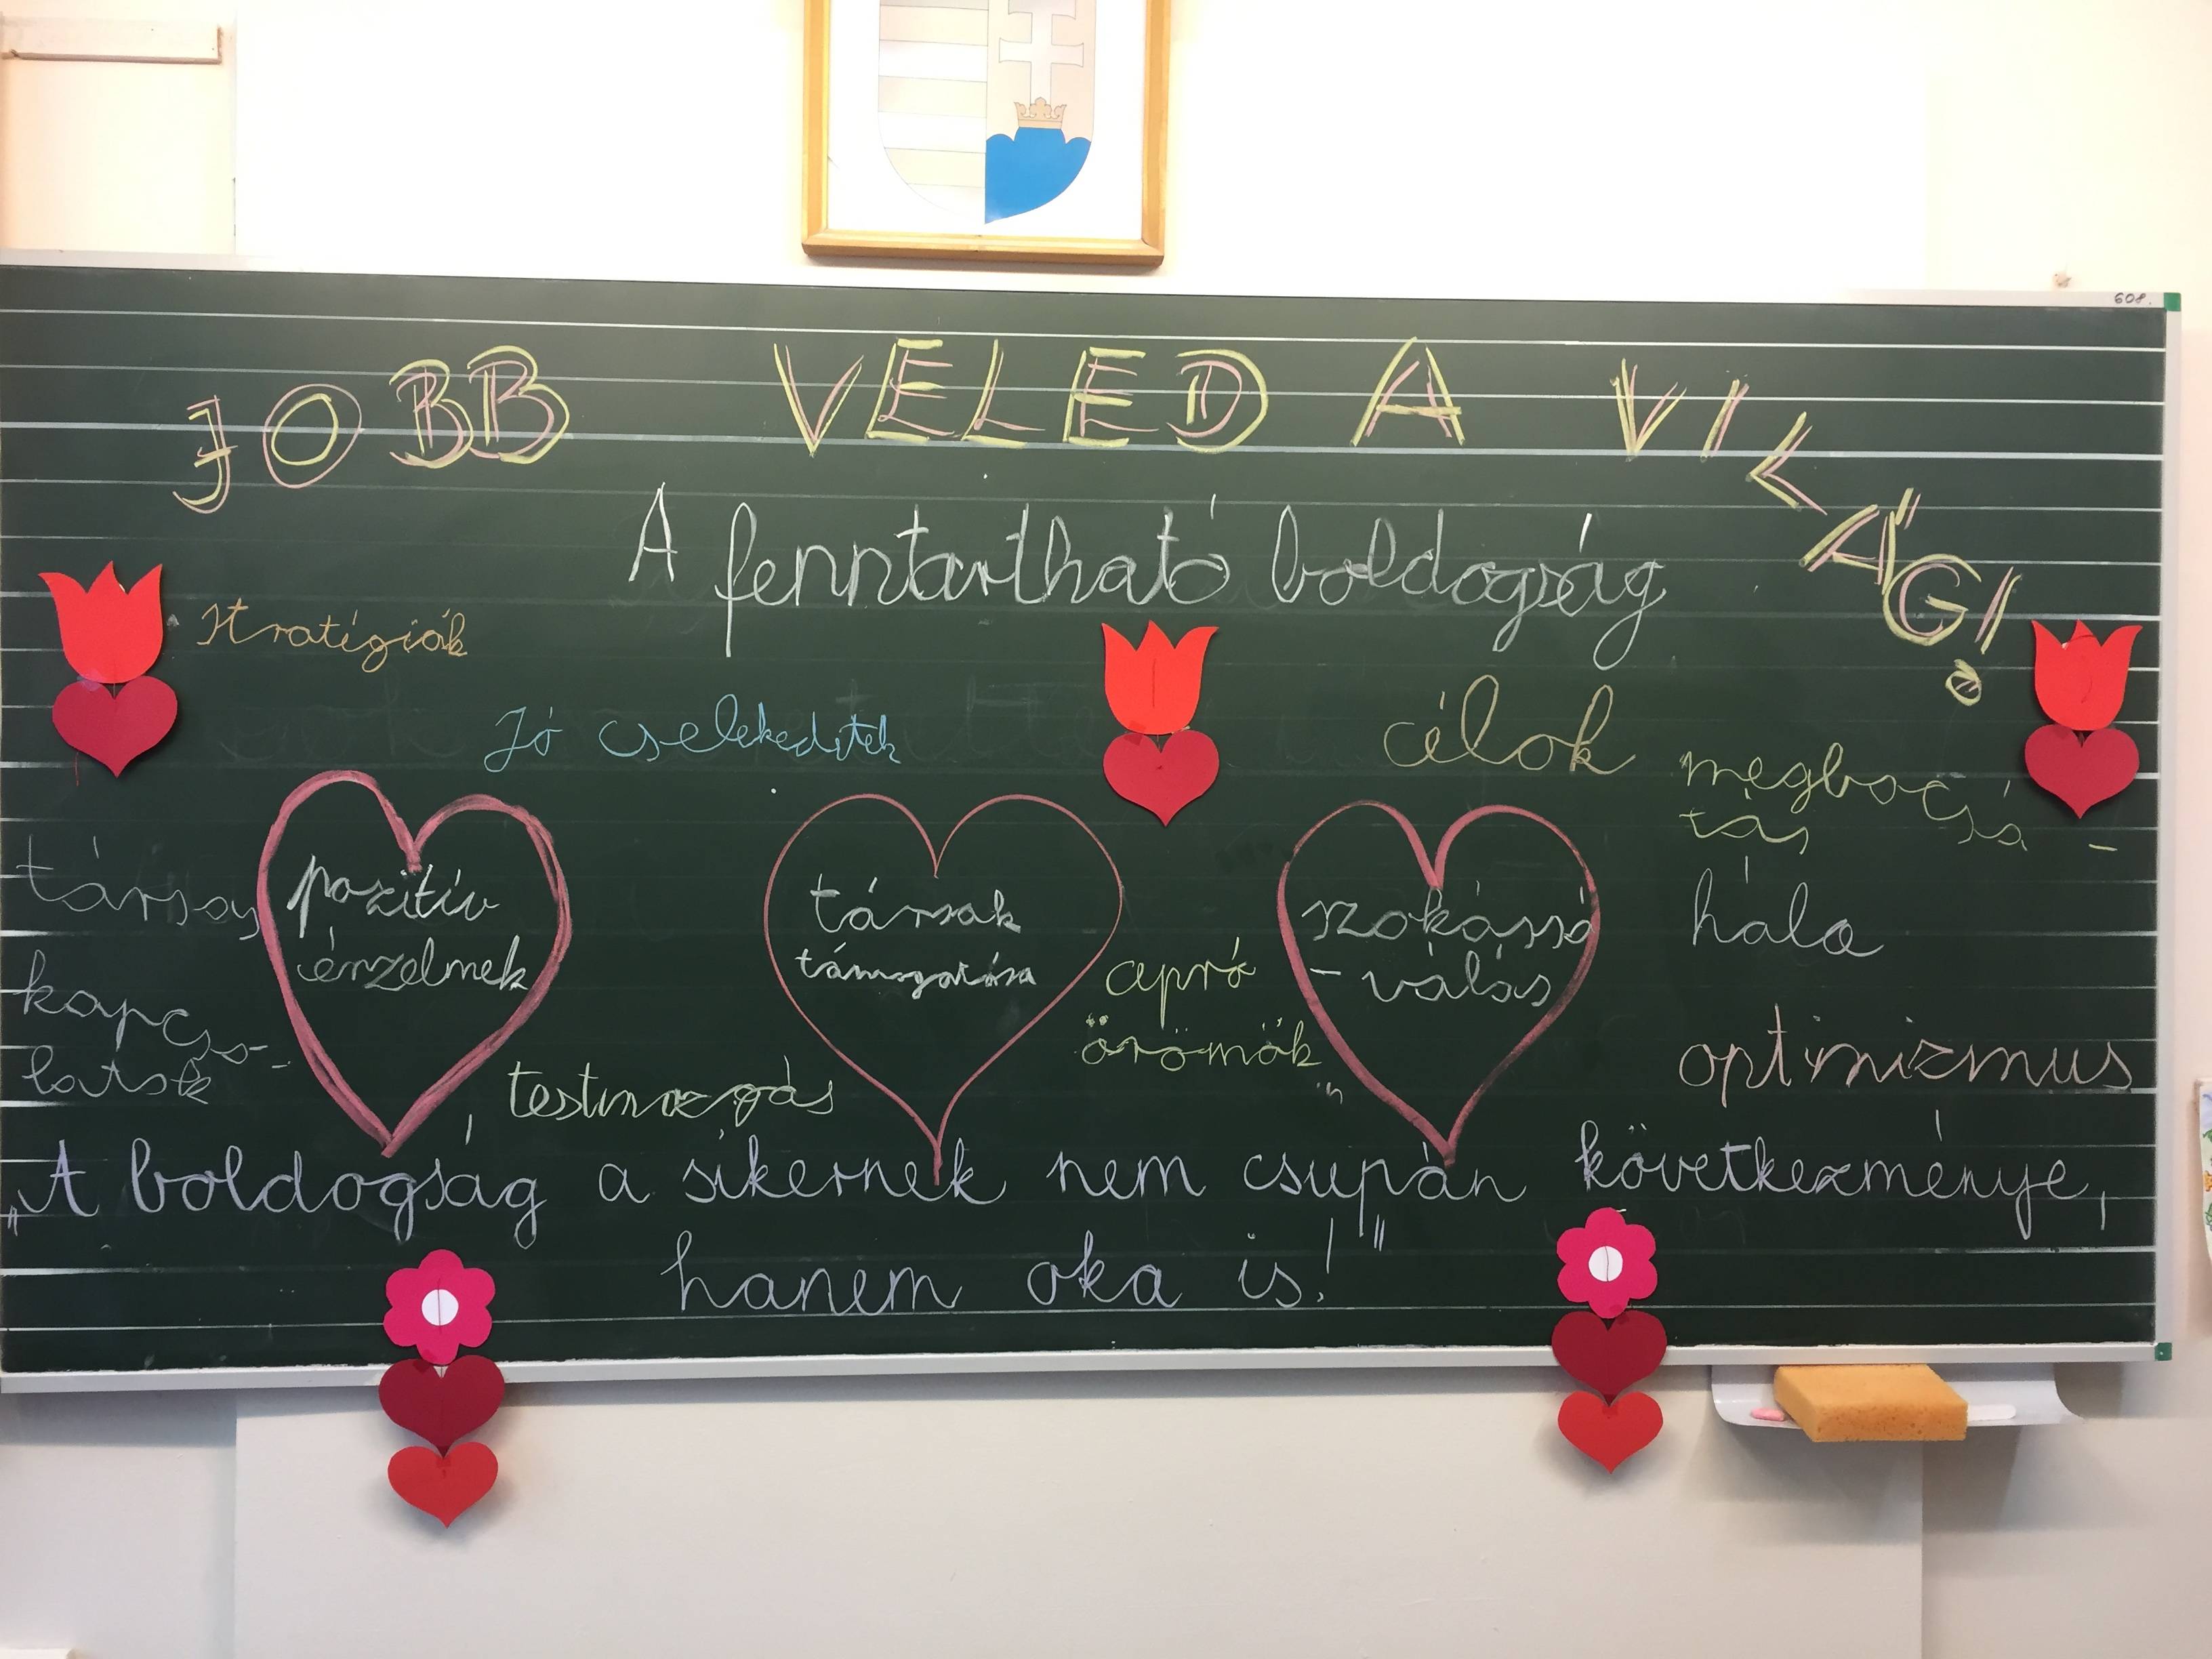 608.
JOBB VELED A VILÁG!
A fenntartható boldogság
Stratégiák
Jó cselekedetek
célok
megbocsá-
tás
társas
kapcso-
latok
pozitív
érzelmek
társak
támogatása
apró
örömök
szokássá
-válás
hála
optimizmus
testmozgás
„A boldogság a sikernek nem csupán következménye,
hanem oka is!"